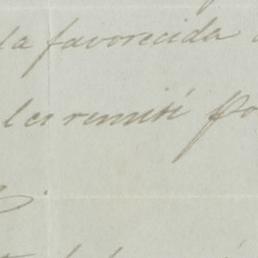 la favorecida
les remití po